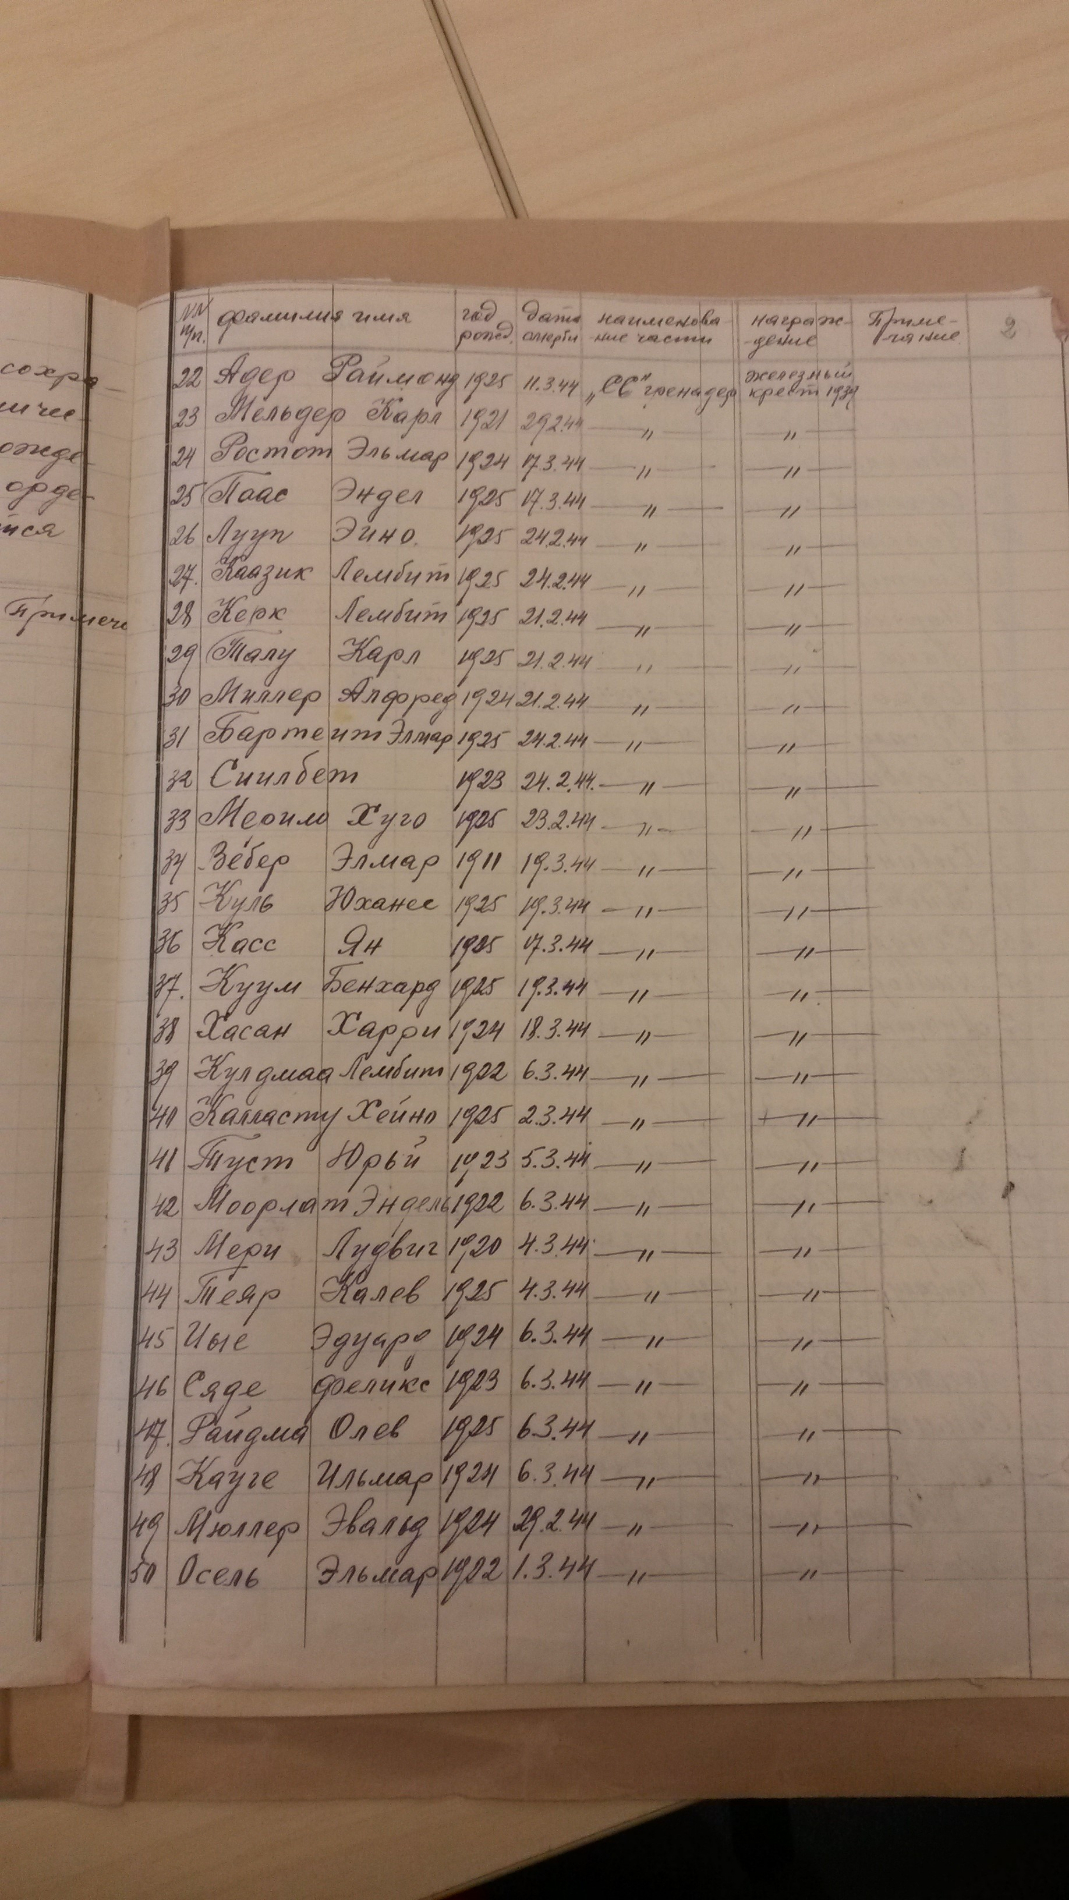 сохра-
ничес-
ожде-
орде-
тся
Примеча
NN п/п. фамилия имя год рожд. дата смерти наименова- -ние части награж- -дение Приме- -чание 2
22 Адер Раймонд 1925 11.3.44 „СС" гренадер железный крест 1939
23 Мельдер Карл 1921 29.2.44 — „ — — „ —
24 Ростот Эльмар 1924 17.3.44 — „ — — „ —
25 Паас Эндел 1925 17.3.44 — „ — — „ —
26 Лууп Эйно. 1925 24.2.44 — „ — — „ —
27. Каазик Лембит 1925 24.2.44 — „ — — „ —
28 Керк Лембит 1925 21.2.44 — „ — — „ —
29 Талу Карл 1925 21.2.44 — „ — — „ —
30 Миллер Алфред 1924 21.2.44 — „ — — „ —
31 Бартеит Элмар 1925 24.2.44 — „ — — „ —
32 Сиилбет 1923 24.2.44. — „ — — „ —
33 Хуго 1925 23.2.44 — „ — — „ —
34 Вебер Элмар 1911 19.3.44 — „ — — „ —
35 Куль Юханес 1925 19.3.44 — „ — — „ —
36 Касс Ян 1925 17.3.44 — „ — — „ —
37. Куум Бенхард 1925 19.3.44 — „ — — „ —
38 Хасан Харри 1924 18.3.44 — „ — — „ —
39 Кулдмаа Лембит 1922 6.3.44 — „ — — „ —
40 Калласту Хейно 1925 2.3.44 — „ — — „ —
41 Туст Юрьй 1923 5.3.44 — „ — — „ —
42 Моорлат Эндель 1922 6.3.44 — „ — — „ —
43 Мери Лудвиг 1920 4.3.44 — „ — — „ —
44 Теяр Калев 1925 4.3.44 — „ — — „ —
45 Иые Эдуард 1924 6.3.44 — „ — — „ —
46 Сяде Феликс 1923 6.3.44 — „ — — „ —
47. Райдма Олев 1925 6.3.44 — „ — — „ —
48 Кауге Ильмар 1924 6.3.44 — „ — — „ —
49 Мюллер Эвальд 1924 29.2.44 — „ — — „ —
50 Осель Эльмар 1922 1.3.44 — „ — — „ —